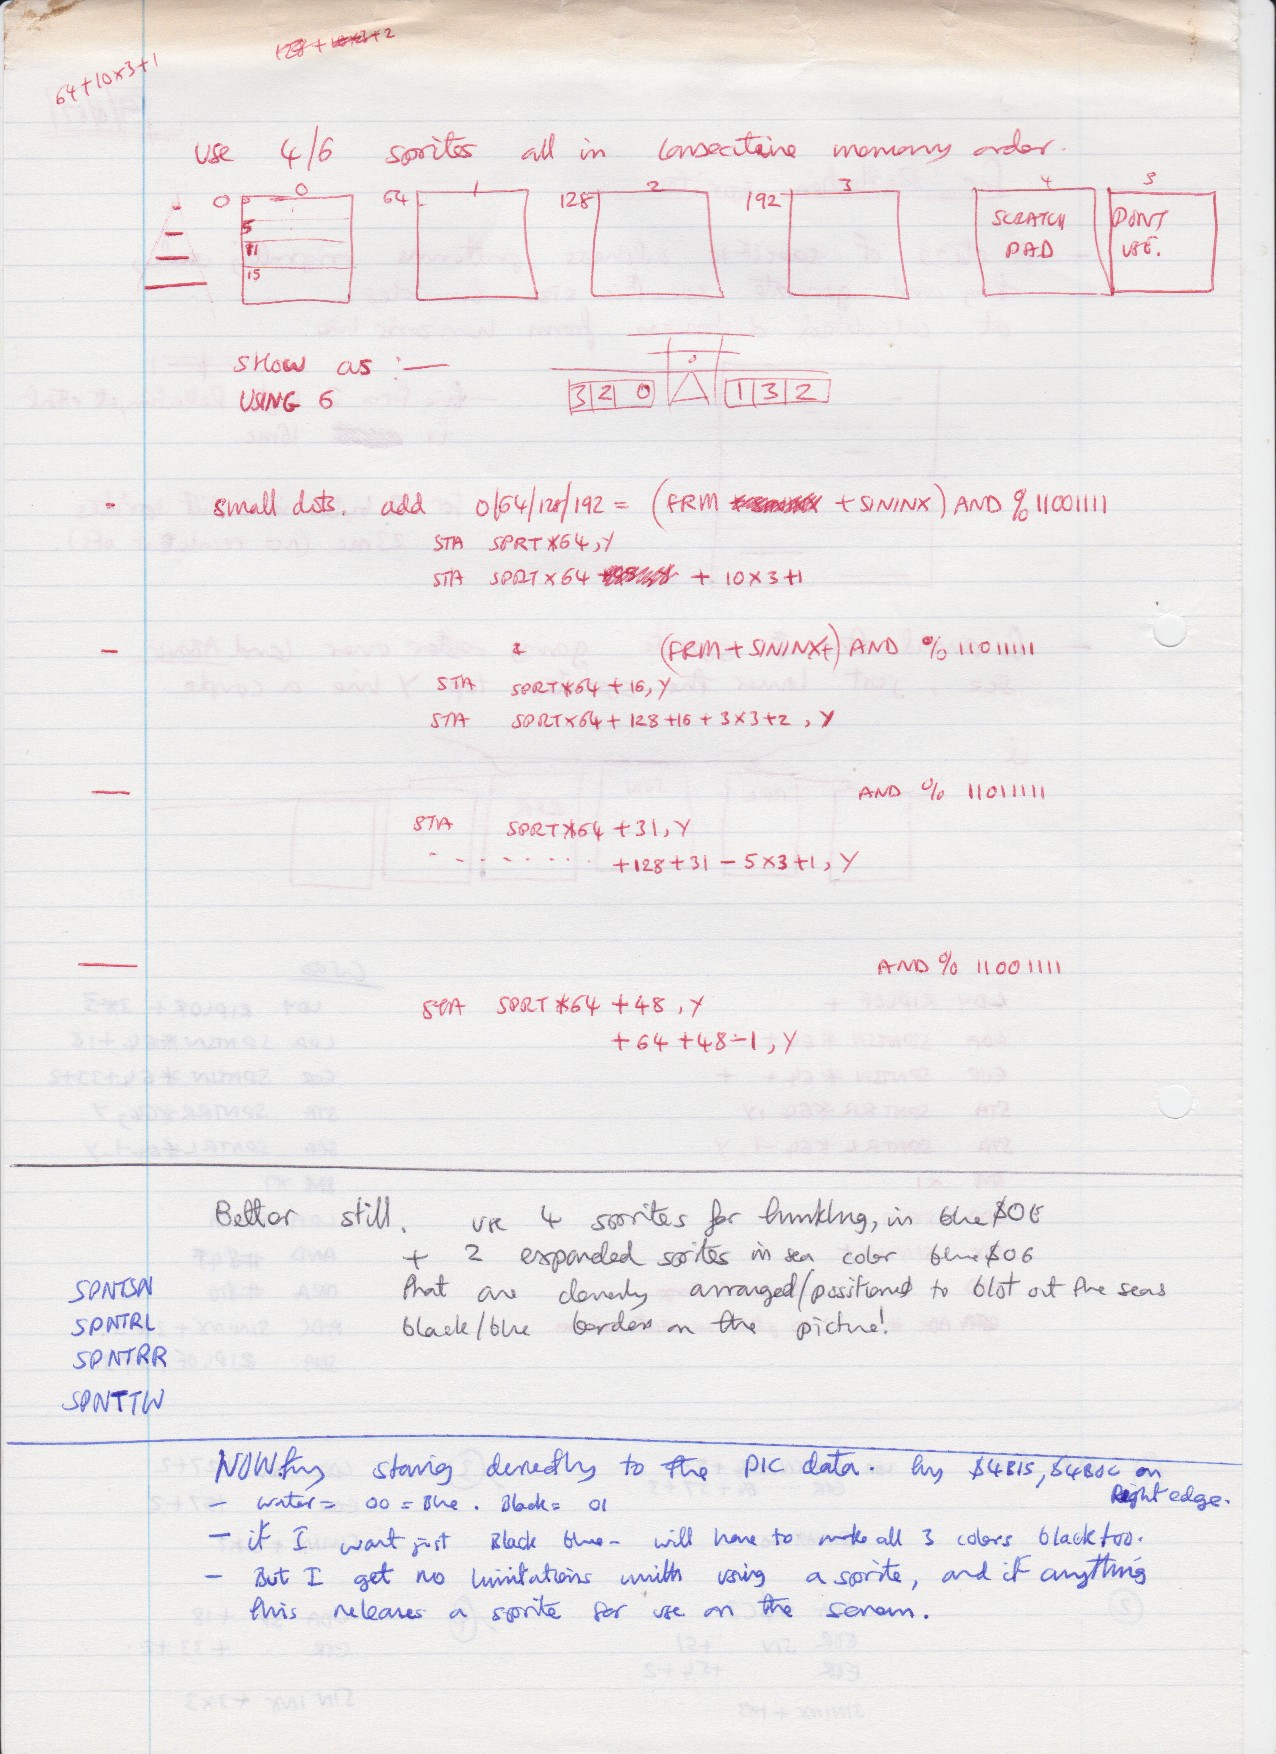 64+10×3+1
128+10×3+2
USE 4/6 sprites all in consecutive memory order.
0 0 64 1 128 2 192 3 4 5
5
11
15
SCRATCH PAD
DONT USE.
SHOW as :—
USING 6
3 2 0 1 3 2
- small dots. add 0/64/128/192 = (FRM + SININX) AND % 11001111
STA SPRT*64,Y
STA SPRT×64 + 10×3+1
(FRM + SININX+) AND % 11011111
STA SPRT*64 + 16, Y
STA SPRT×64 + 128 +16 + 3×3+2 , Y
AND % 11011111
STA SPRT*64 +31, Y
. . . . . . . +128+31 - 5×3+1, Y
AND % 11001111
STA SPRT*64 +48 , Y
+64 +48-1, Y
Better still. use 4 sprites for twinkling, in blue $0E
+ 2 expanded sprites in sea color blue $06
that are cleverly arranged/positioned to blot out the seas
black/blue borders on the picture!
SPNTSN
SPNTRL
SPNTRR
SPNTTW
NOW. try storing directly to the PIC data. try $4B15, $4B0C on Right edge.
- water = 00 = Blue . Black = 01
- if I want just Black blue - will have to make all 3 colors black too.
- But I get no limitations with using a sprite, and if anything
this releases a sprite for use on the screen.